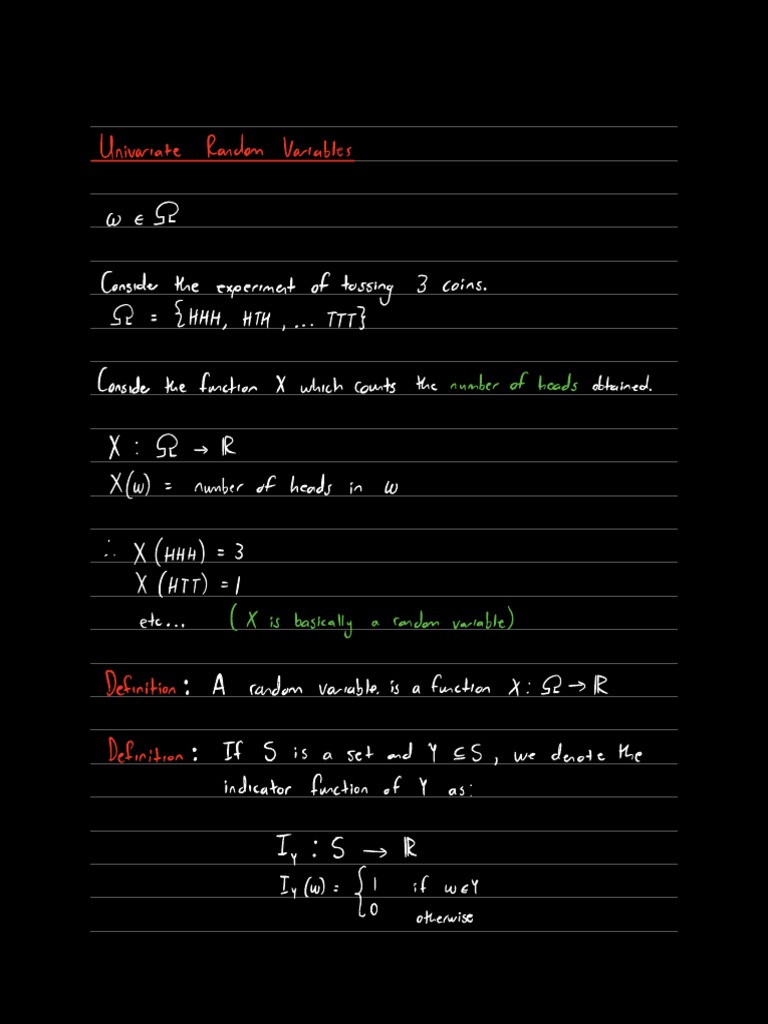 Univariate Random Variables
ω ∈ Ω
Consider the experiment of tossing 3 coins.
Ω = {HHH, HTH, ... TTT}
Consider the function X which counts the number of heads obtained.
X : Ω → ℝ
X(ω) = number of heads in ω
∴ X(HHH) = 3
X(HTT) = 1
etc... (X is basically a random variable)
Definition: A random variable is a function X: Ω → ℝ
Definition: If S is a set and Y ⊆ S, we denote the
indicator function of Y as:
I_Y : S → ℝ
I_Y(ω) = { 1 if ω ∈ Y
0 otherwise